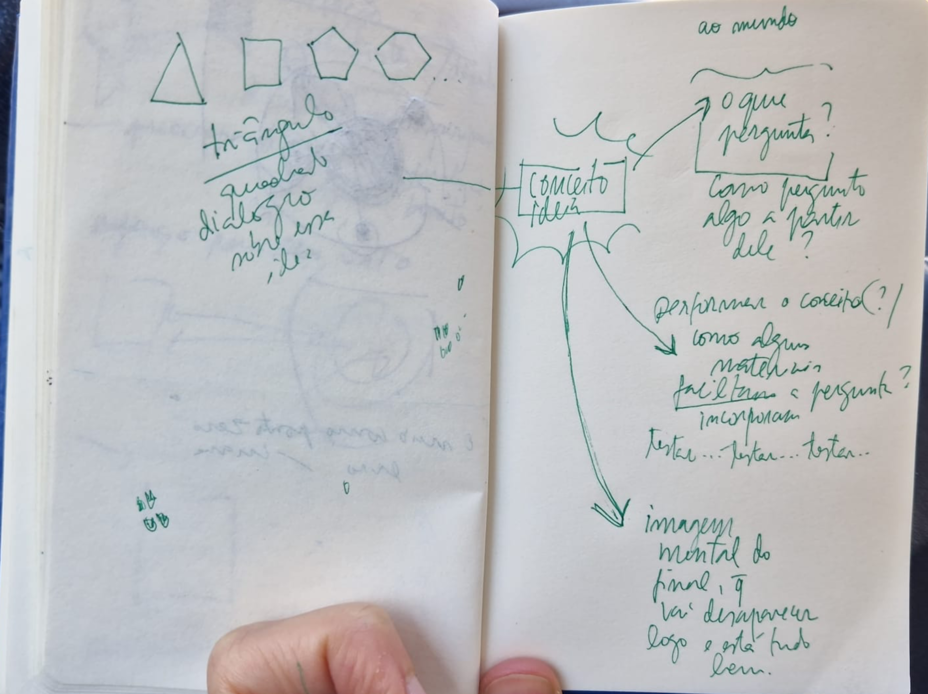 triângulo
quadrado
dialogro
sobre essa
ideia
ao mundo
conceito
ideia
o que
pergunta?
Como pergunto
algo a partir
dele?
performar o conceito(?)
como alguns
materiais
facilitam a pergunta?
incorporam
testar... testar... testar..
imagem
mental do
final, q̄
vai desaparecer
logo e está tudo
bem.